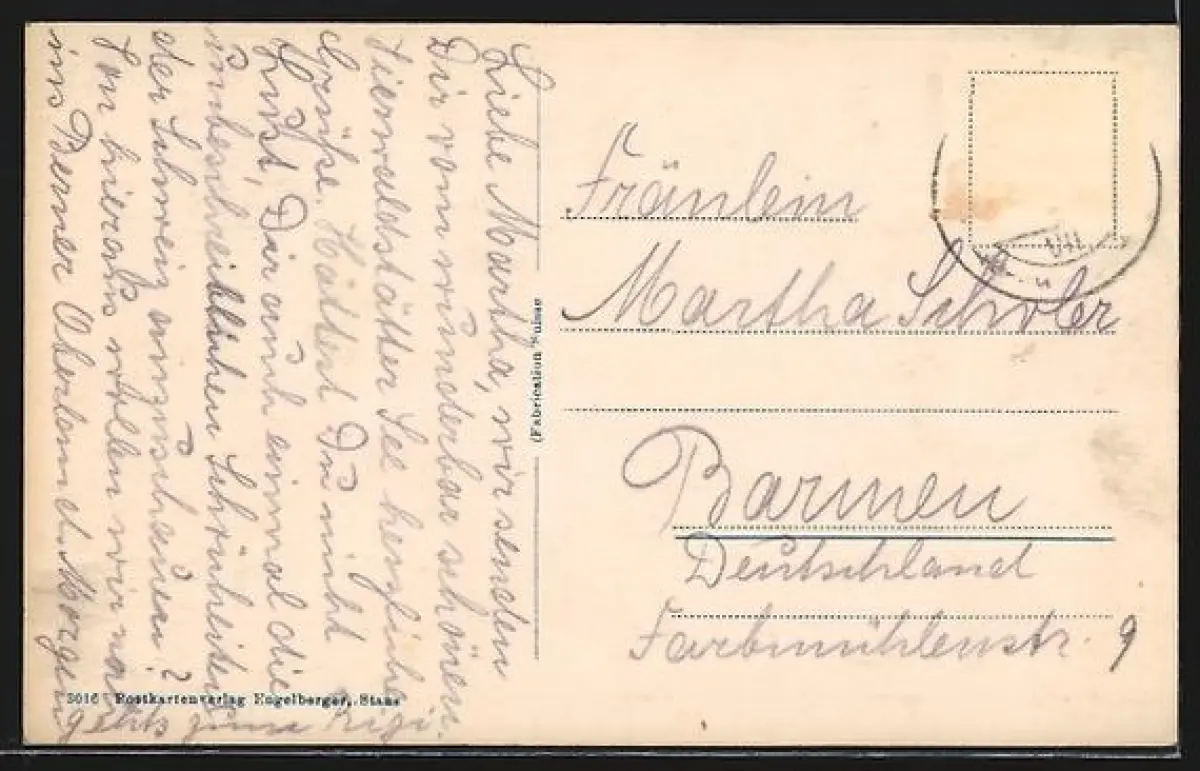 Liebe Martha, wir senden
Dir vom wunderbar schönen
Vierwaldstätter See herzliche
Grüße. Hättest Du nicht
Lust, Dir auch einmal die
unbeschreiblichen Schönheiten
der Schweiz anzuschauen?
Von hieraus wollen wir noch
ins Berner Oberland. Morgen
gehts zum Rigi.
(Fabrication Suisse)
Fräulein
Martha Schöler
Barmen
Deutschland
Farbmühlenstr. 9
VIII
3016 Postkartenverlag Engelberger, Stans